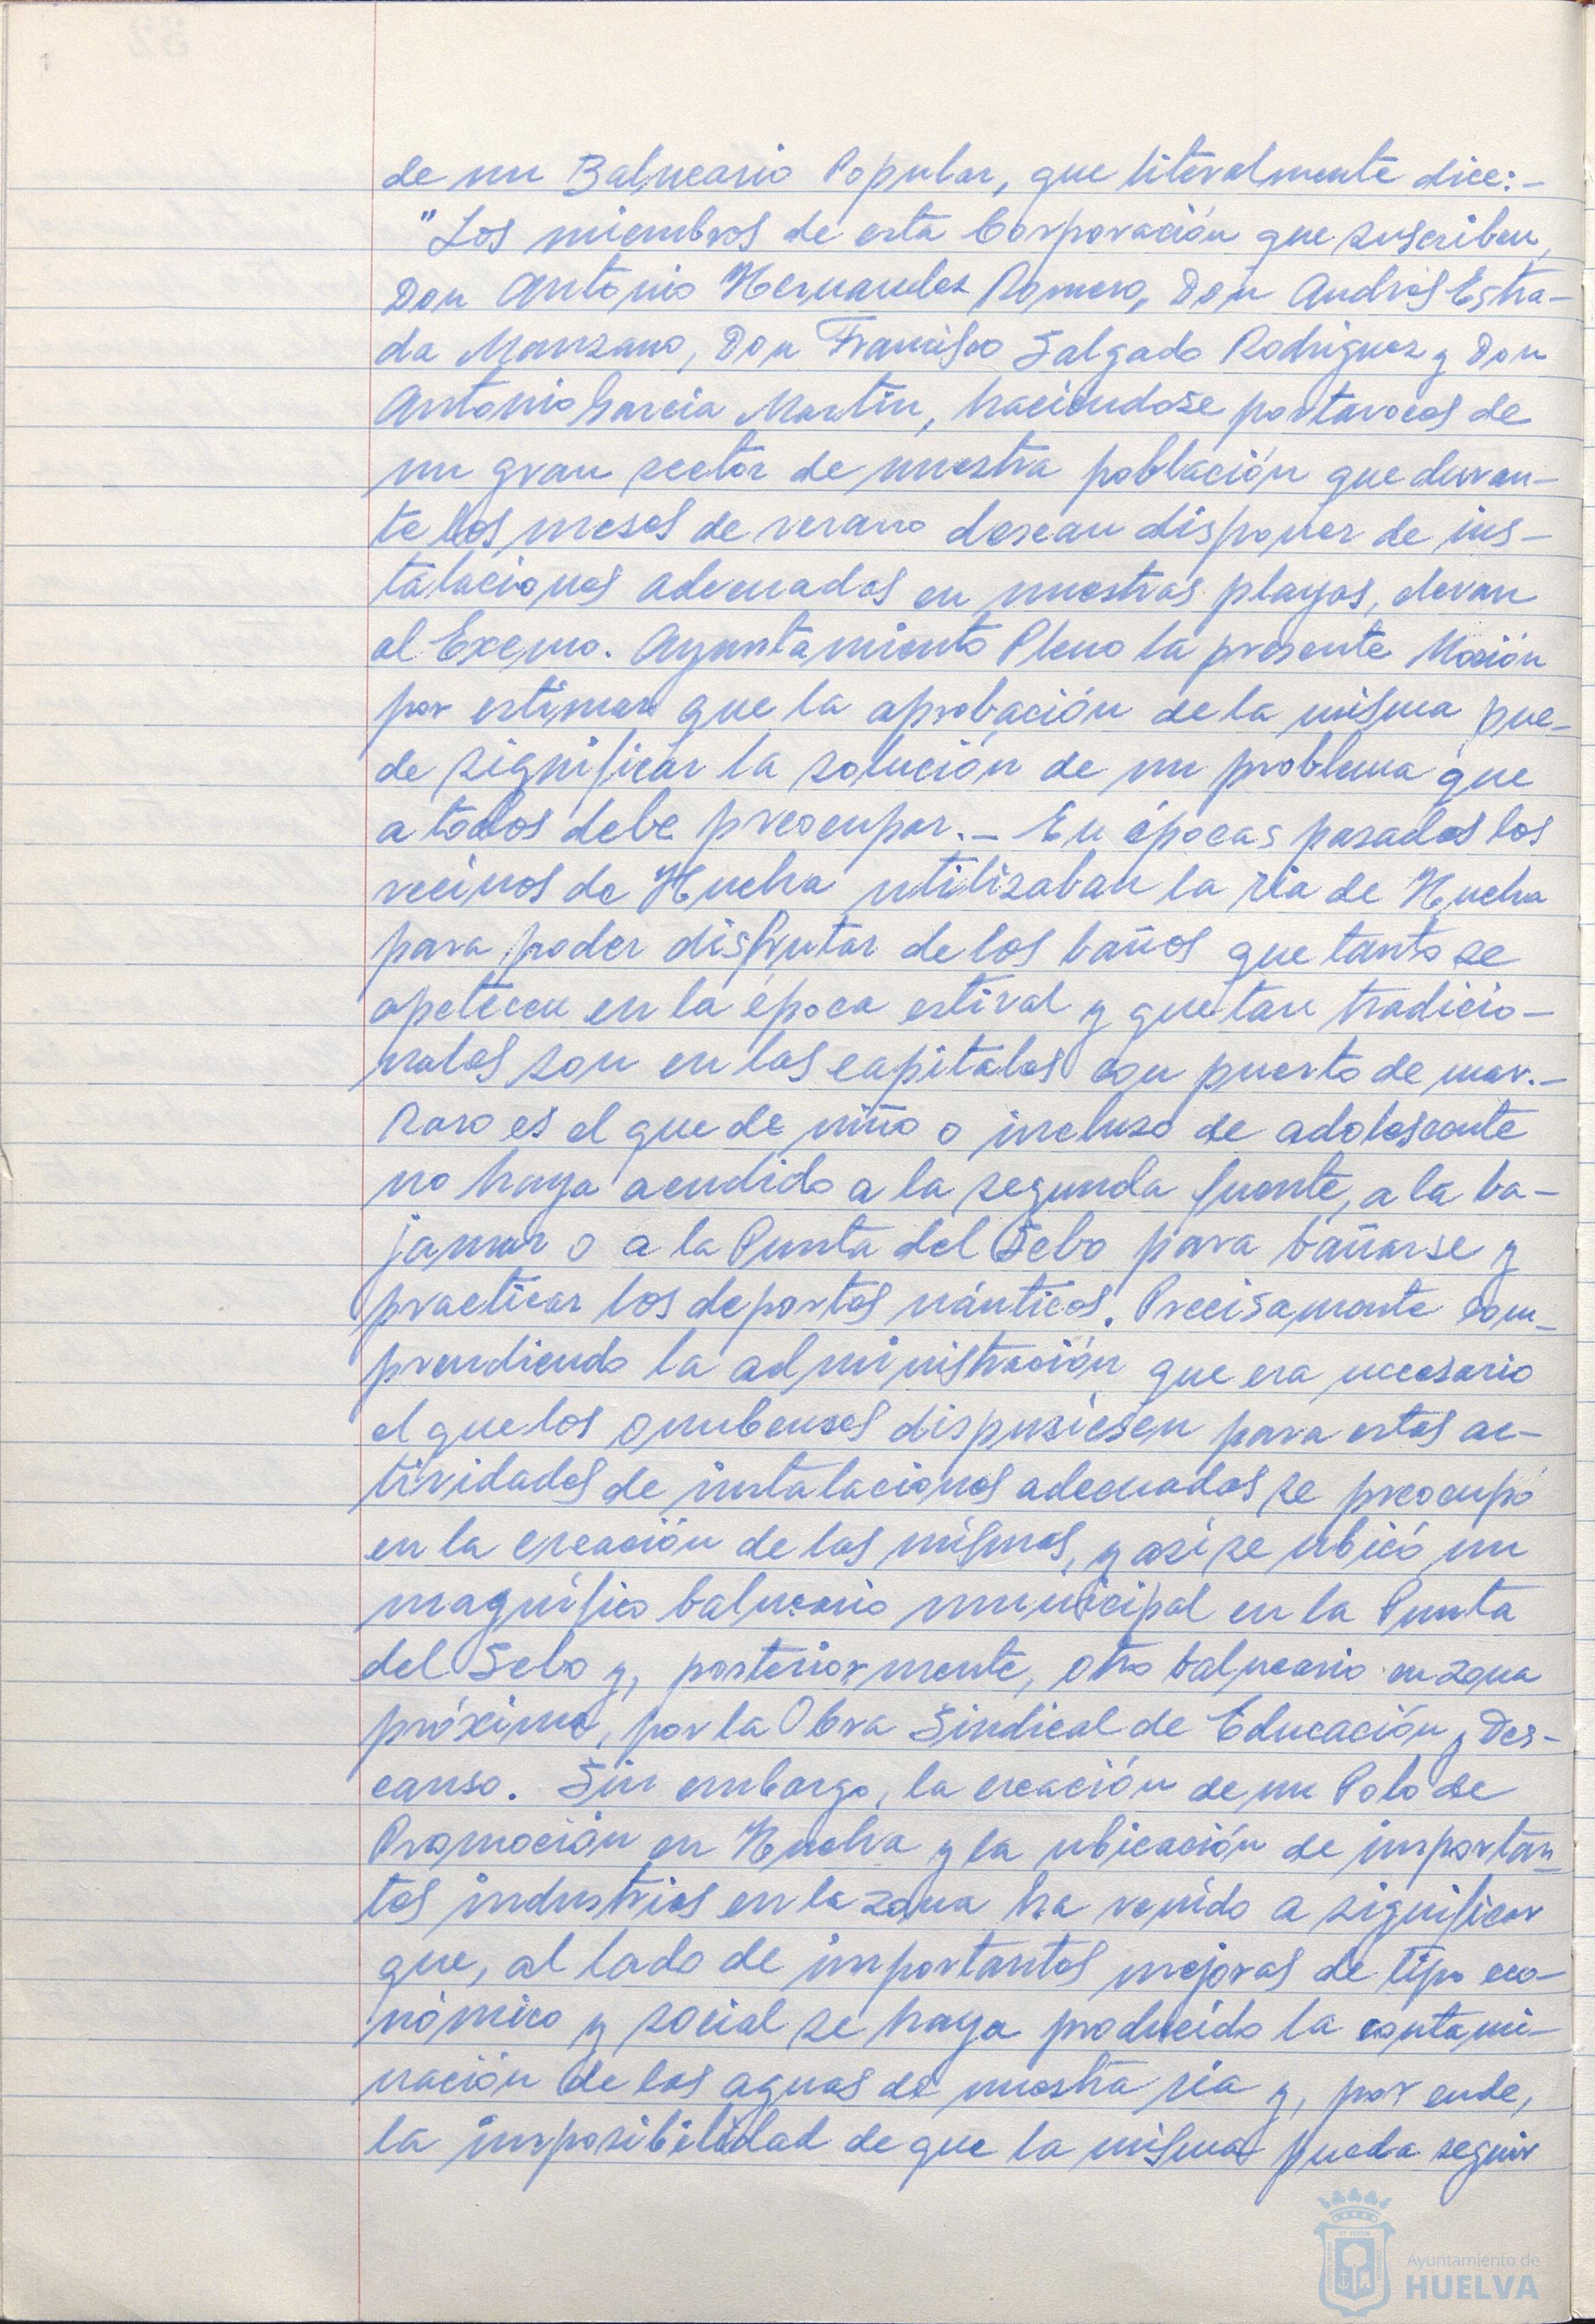 de un Balneario Popular, que literalmente dice:-
"Los miembros de esta Corporación que suscriben,
Don Antonio Hernandez Romero, Don Andrés Estra-
da Manzano, Don Francisco Salgado Rodriguez y Don
Antonio Garcia Martín, haciendose portavoces de
un gran sector de nuestra población que duran-
te los meses de verano desean disponer de ins-
talaciones adecuadas en nuestras playas, elevan
al Excmo. Ayuntamiento Pleno la presente Moción
por estimar que la aprobación de la misma pue-
de significar la solución de un problema que
a todos debe preocupar.- En épocas pasadas los
vecinos de Huelva utilizaban la ria de Huelva
para poder disfrutar de los baños que tanto se
apetecen en la época estival y que tan tradicio-
nales son en las capitales con puerto de mar.-
Raro es el que de niño o incluso de adolescente
no haya acudido a la segunda fuente, a la ba-
jamar o a la Punta del Sebo para bañarse y
practicar los deportes náuticos. Precisamente com-
prendiendo la administración que era necesario
el que los onubenses dispusiesen para estas ac-
tividades de instalaciones adecuadas se preocupó
en la creación de las mismas, y así se ubicó un
magnífico balneario municipal en la Punta
del Sebo y, posteriormente, otro balneario en zona
próxima, por la Obra Sindical de Educación y Des-
canso. Sin embargo, la creación de un Polo de
Promoción en Huelva y la ubicación de importan-
tes industrias en la zona ha venido a significar
que, al lado de importantes mejoras de tipo eco-
nómico y social se haya producido la contami-
nación de las aguas de nuestra ria y, por ende,
la imposibilidad de que la misma pueda seguir
Ayuntamiento de
HUELVA